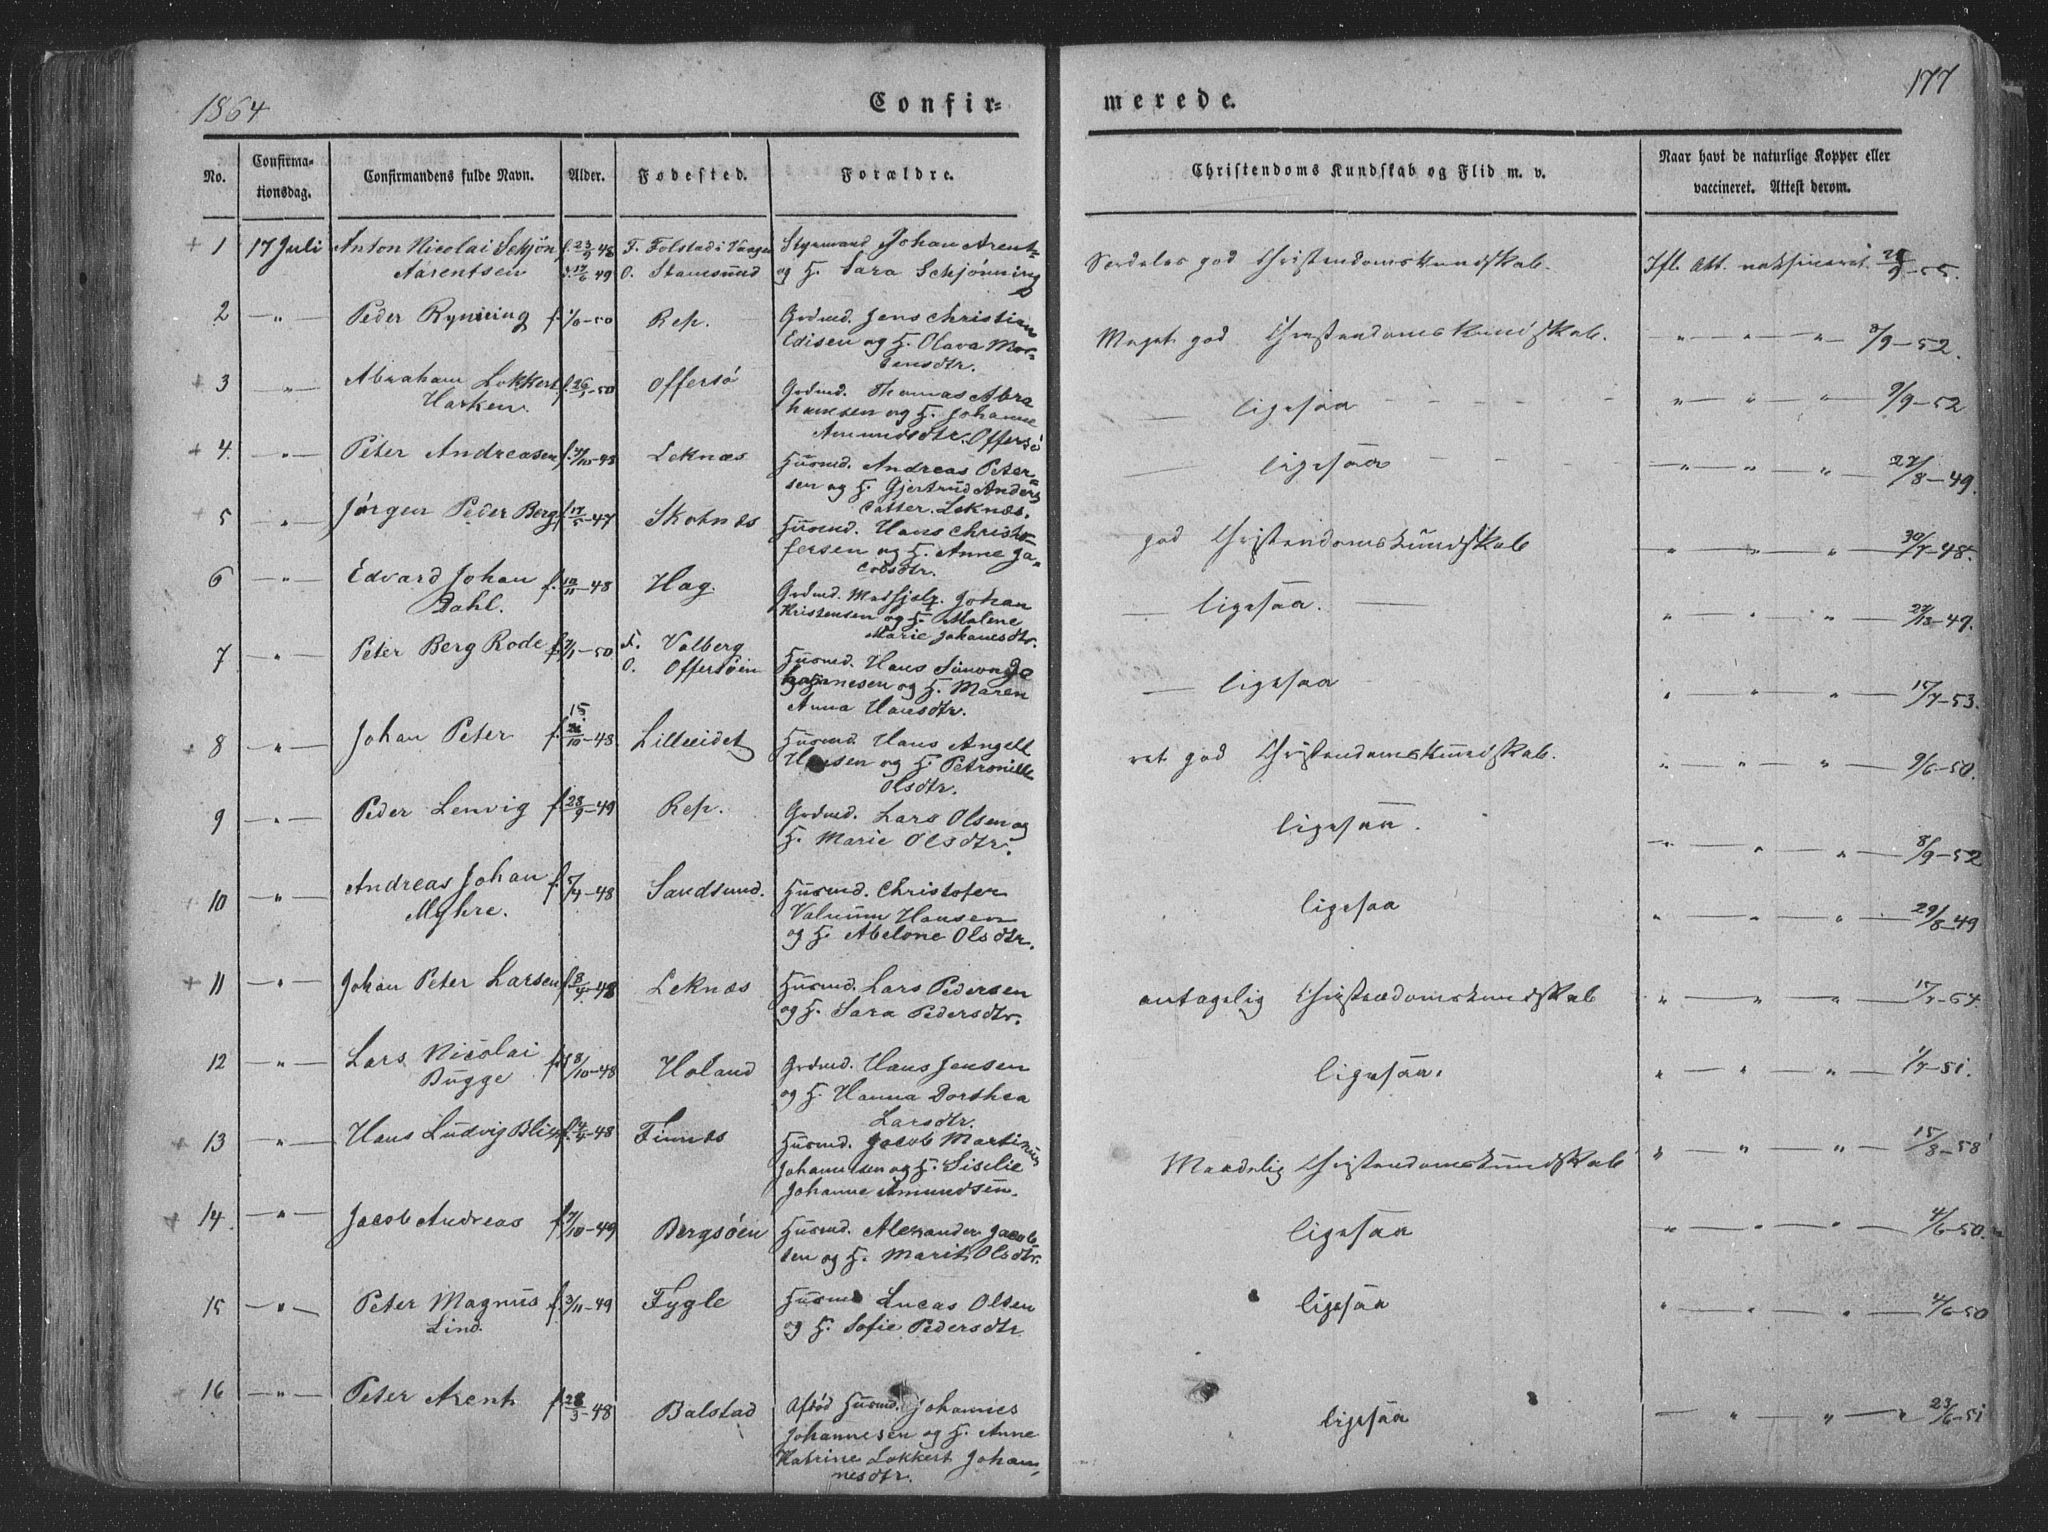 1864 Confir= merede. 177
No. Confirma-tionsdag. Confirmandens fulde Navn. Alder. Fødested. Forældre. Christendoms Kundskab og Flid m. v. Naar havt de naturlige Kopper eller vaccineret. Attest derom.
+ 1 17 Juli Anton Nicolai Schjön f. 23/9 48 F. Folstad i Vaagen Styrmand Johan Arent-
Aarentsen 49 O. Stamsund og H. Sara Schjönning
Særdeles god Christendomskundskab. Ifl. Att. vaksineret -55.
2 — " — Peder Ryning f. -50 Rep. Grdmd. Jens Christian
Edisen og H. Olava Mor-
tensdtr.
Meget god Christendomskundskab. " " " " 8/9-52.
+ 3 " — Abraham Lokkert f. 26/ -50 Offersö Grdmd. Thomas Abra
Harken. hamsen og H. Johanne
Amundsdtr. Offersö
— ligesaa - - - - " " " — 9/9-52
+ 4. — " — Peter Andreasen f. -48 Leknæs Husmd. Andreas Peter-
sen og H. Gjertrud Anders
datter. Leknæs.
— ligesaa - - - " " " — 27/8-49.
+ 5 " — Jörgen Peder Berg f. 17/5-47 Skotnæs Husmd. Hans Christo
fersen og H. Anne Ja-
cobsdtr.
god Christendomskundskab " — " — " — 30/7-48.
6 — " — Edvard Johan f. 10/11-48 Hag. Grdmd. Medhjelp. Johan
Dahl. Kristensen og H. Malene
Marie Johanesdtr.
— ligesaa. — " — " — " — -49.
7 — " — Peter Berg Rode f. 7/1-50 F. Valberg
O. Offersöen Husmd. Hans Simon Jo
hannesen og H. Maren
Anna Hansdtr.
— ligesaa " — " — " — 17/7-53.
+ 8 — " — Johan Peter f. 15
/10-48 Lilleeidet Husmd. Hans Angell
Hansen og H. Petronille
Olsdtr.
ret god Christendomskundskab. " — " — " — 9/6-50.
9 — " — Peder Lenvig f. 28/9-49 Rep. Grdmd. Lars Olsen og
H. Marie Olsdtr.
ligesaa. — " — " — " — 8/9-52
+ 10 — " — Andreas Johan f. 7/4-48 Sandsund. Husmd. Christofer
Myhre. Hansen
og H. Abelone Olsdtr.
ligesaa " — " — " — 29/8-49
+ 11 — " — Johan Peter Larsen f. 8/4-48 Leknæs Husmd. Lars Pedersen
og H. Sara Pedersdtr.
antagelig Christendomskundskab " — " — " — 17/7-64.
12 — " — Lars Nicolai f. 8/10-48 Holand Grdmd. Hans Jensen
Bugge og H. Hanna Dorthea
Larsdtr.
ligesaa. " — " — " — 1/7-51.
+ 13 — " — Hans Ludvig Blix f. -48 Finnæs Husmd. Jacob Martinus
Johannesen og H. Siselie
Johanne Amundsen.
Maadelig Christendomskundskab " — " — " — 15/8-58
+ 14. — " — Jacob Andreas f. 7/10-49 Bergsöen Husmd. Alexander Jacob-
sen og H. Marit Olsdtr.
ligesaa " — " — " — 4/6-50.
15 — " — Peter Magnus f. 3/11-49 Fygle Husmd Lucas Olsen
Lind. og H. Sofie Pedersdtr
ligesaa " — " — " — 4/6-50
16 — " — Peter Arent f. 28/3-48 Balstad Afdöd Husmd. Johannes
Johannesen og H. Anne
Katrine Lokkert Johan-
nesdtr.
ligesaa — " — " — " 23/6-51